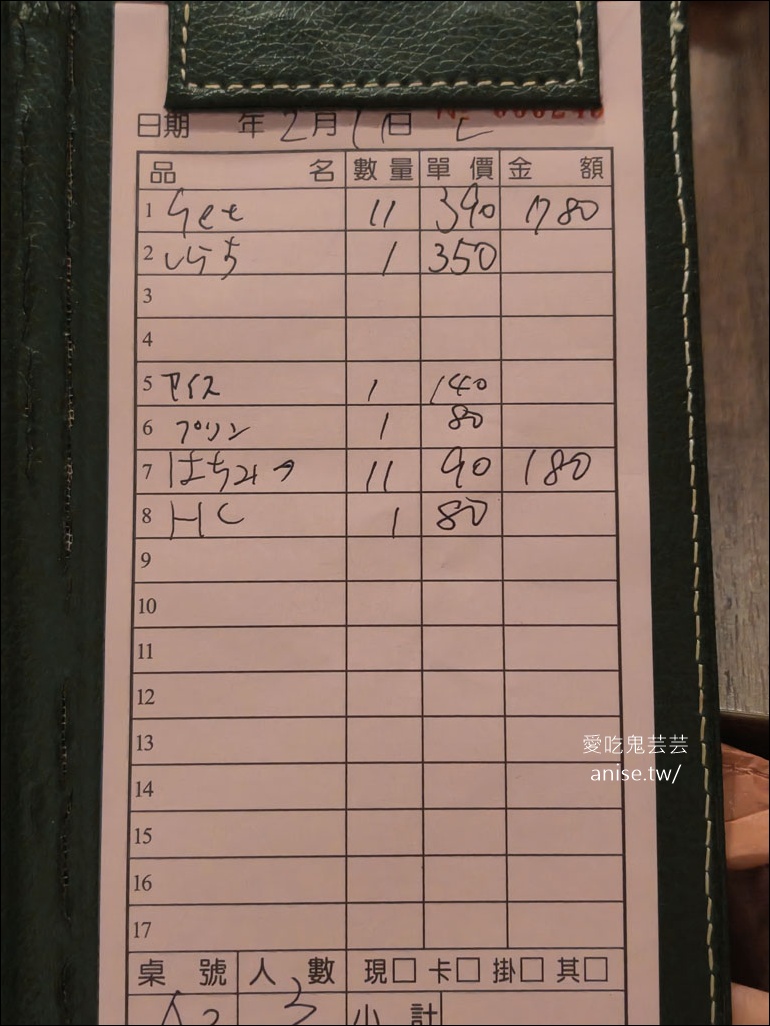 日期 年 2月 11日
品名 數量 單價 金額
1 11 390 780
2 1 350
3
4
5 アイス 1 140
6 プリン 1 80
7 はちみつ 11 90 180
8 HC 1 80
9
10
11
12
13
14
15
16
17
桌號 人數 現□ 卡□ 掛□ 其□
3 小計
愛吃鬼芸芸
anise.tw/